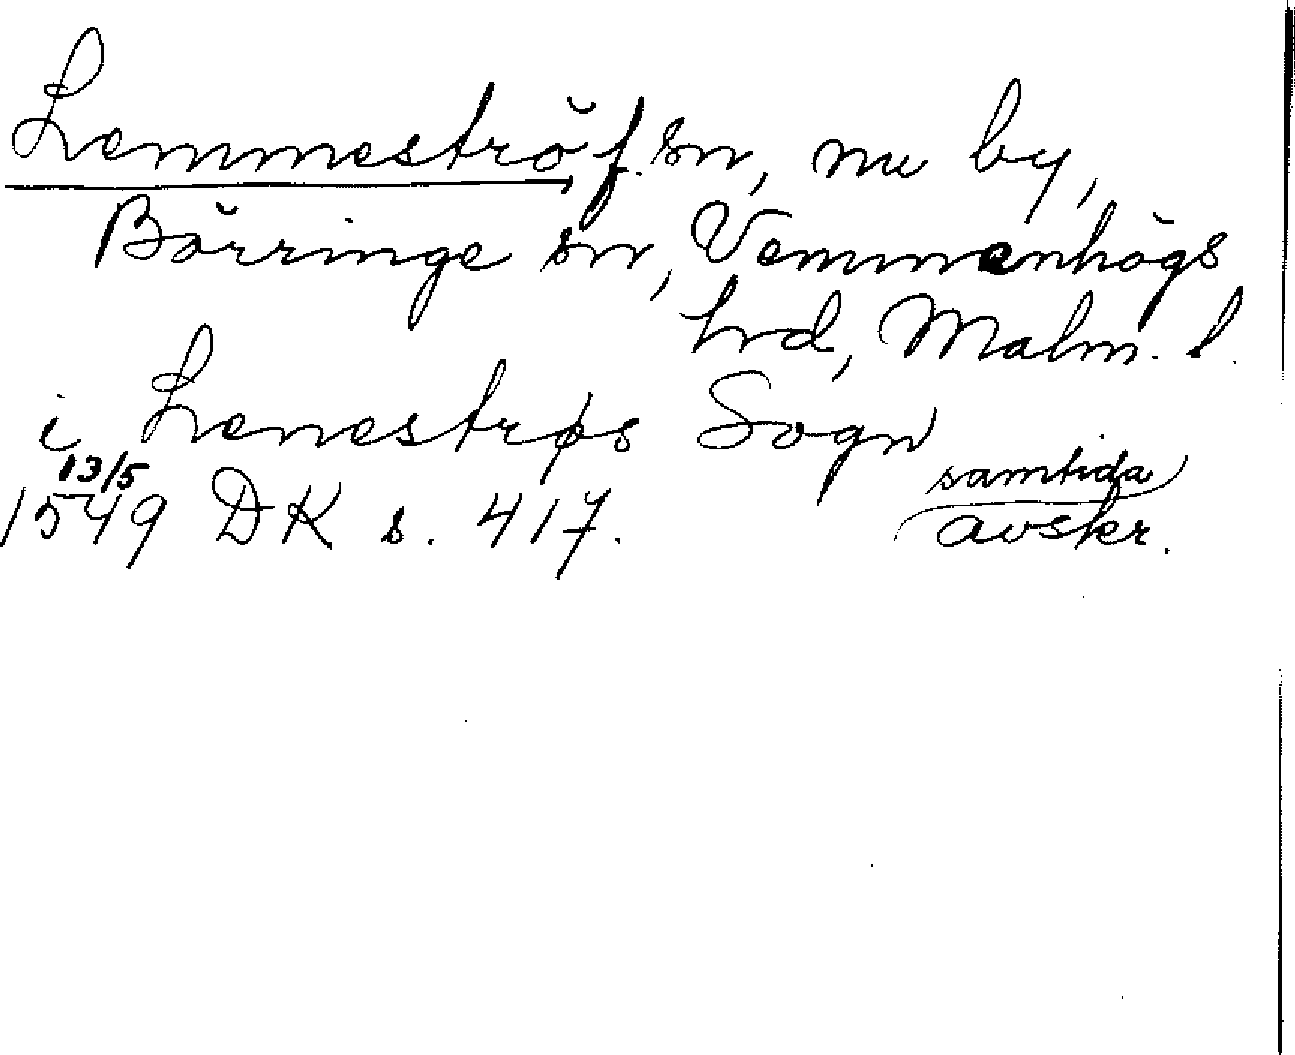 Lemmeströ, f. sn, nu by,
Börringe sn, Vemmenhögs
hrd, Malm. l.
i Lenestrøs Sogn
13/5
1549 DK s. 417.
samtida
avskr.